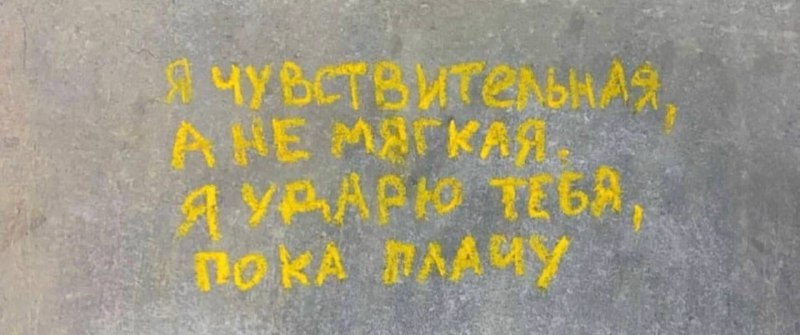 Я ЧУВСТВИТЕЛЬНАЯ,
А НЕ МЯГКАЯ.
Я УДАРЮ ТЕБЯ,
ПОКА ПЛАЧУ